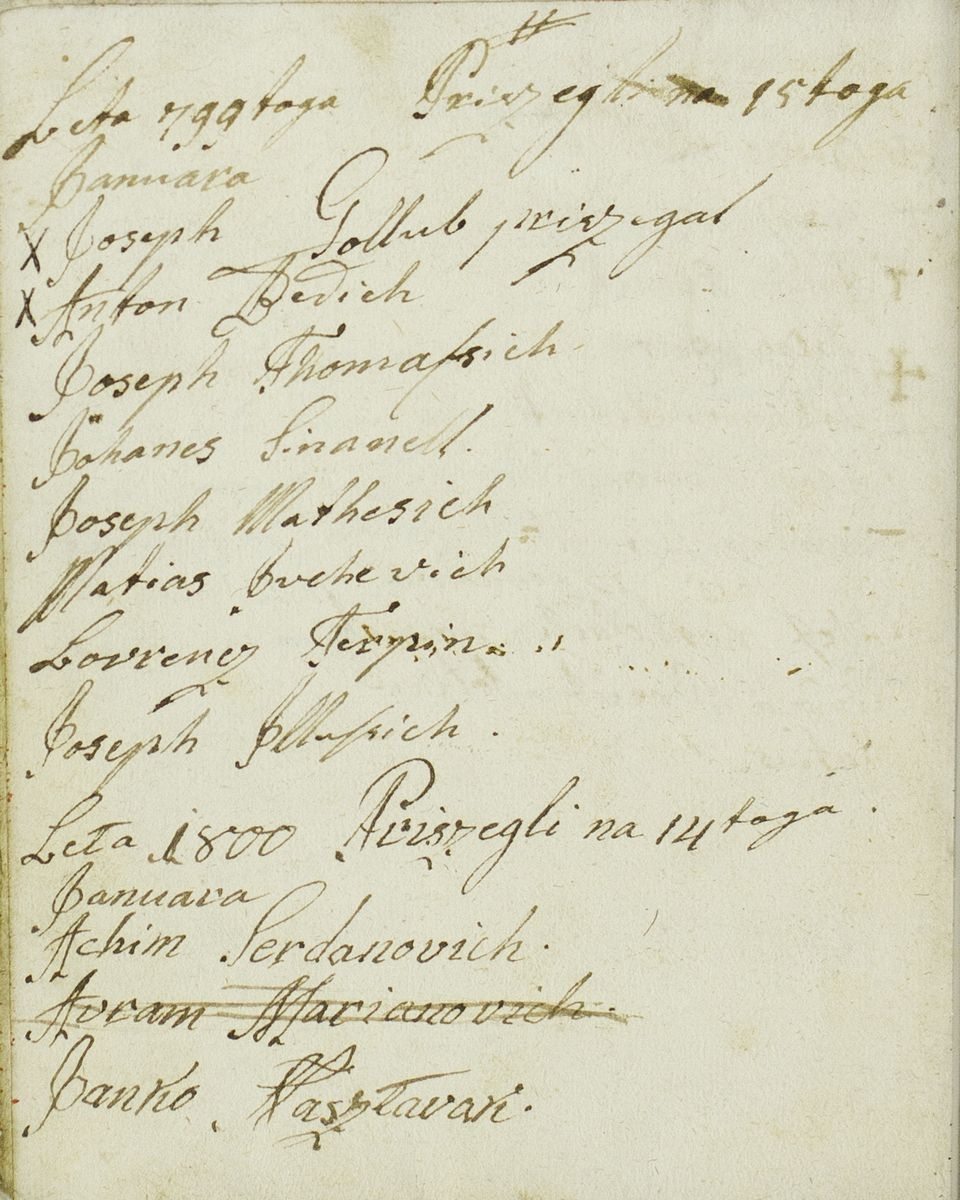 Leta 799toga Priszegli na 15toga
Januara
X Joseph Gollub priszegal
X Anton Dedich
Joseph Thomassich
Johanes Sinanell.
Joseph Mathesich
Matias Ivchevich
Lovrencz Terpin.
Joseph Illussich.
Leta 1800 Priszegli na 14toga.
Januara
Achim Serdanovich.
Avram Marianovich.
Janko Vasztavak.